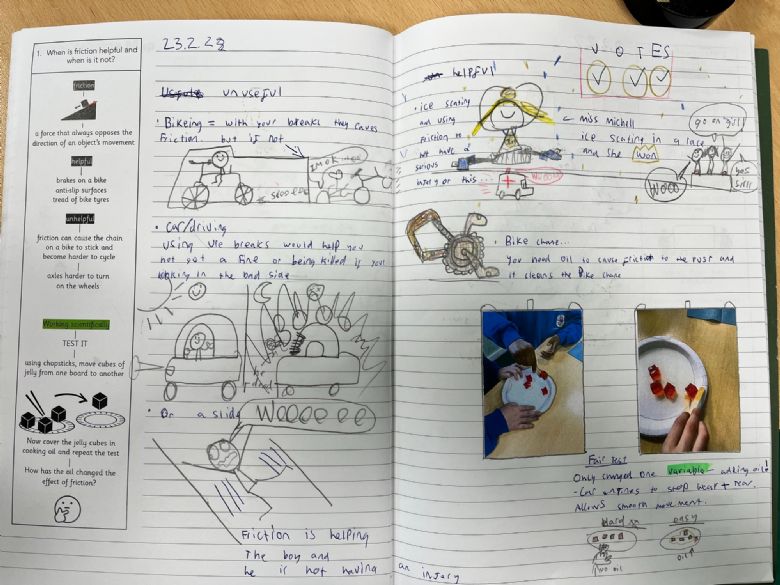 1. When is friction helpful and
when is it not?
friction
a force that always opposes the
direction of an object's movement
helpful
brakes on a bike
anti-slip surfaces
tread of bike tyres
unhelpful
friction can cause the chain
on a bike to stick and
become harder to cycle
axles harder to turn
on the wheels
Working scientifically
TEST IT
using chopsticks, move cubes of
jelly from one board to another
Now cover the jelly cubes in
cooking oil and repeat the test
How has the oil changed the
effect of friction?
23.2.23
unuseful
• Bikeing = with your breaks they caues
friction. but if not
IM OK
• Car/driving
using the breaks would help you
not get a fine or being killed if your
in the bad side
he died
• Or a slide
Woooo ee
Friction is helping
The boy and
he is not having an injury
helpful
V O T E S
• ice scating
and using
friction to
not have a
serious
injery or this...
← miss Michell
ice scating in a race
and she won
go on girl
yes
Wooo
• Bike chane...
You need oil to cause friction to the rust and
it cleans the Bike chane
Fair Test
Only changed one variable - adding oil!
- Car engines to stop wear + tear.
Allows smooth movement.
Hard
easy
no oil
oil